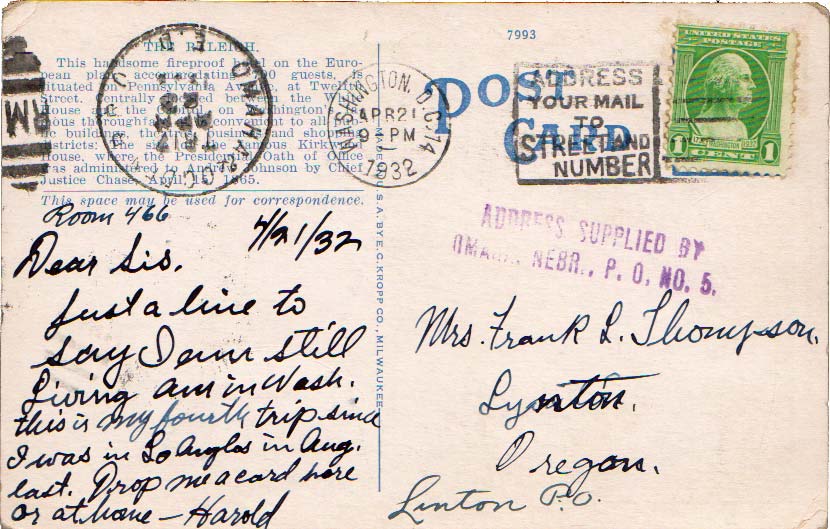 7993
THE RALEIGH.
This handsome fireproof hotel on the Euro-
pean plan, accommodating guests, is
situated on Pennsylvania Avenue, at Twelfth
Street. Centrally located between the
House and the Capitol on Washington's
ious thoroughfare, convenient to all
lic buildings, the business and shopping
districts: The site of the famous Kirkwood
House, where the Presidential Oath of Office
was administered to Andrew Johnson by Chief
Justice Chase, April 15, 1865.
This space may be used for correspondence.
PM
OMAHA
WASHINGTON, D.C. 14
APR 21
9 PM
1932
POST
CARD
ADDRESS
YOUR MAIL
TO
STREET AND
NUMBER
UNITED STATES
POSTAGE
1 CENT 1
MADE IN U.S.A. BY E. C. KROPP CO., MILWAUKEE
ADDRESS SUPPLIED BY
OMAHA, NEBR., P. O. NO. 5.
Room 466
4/21/32
Dear Sis.
Just a line to
say I am still
living am in Wash.
this is my fourth trip since
I was in Los Angles in Aug.
last. Drop me a card here
or at home — Harold
Mrs. Frank L. Thompson.
Oregon.
Linton P.O.